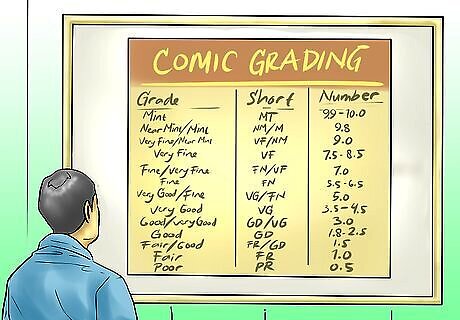 COMIC GRADING
Grade Short Number
Mint MT 9.9-10.0
Near Mint/Mint NM/M 9.8
Very Fine/Near Mint VF/NM 9.0
Very Fine VF 7.5-8.5
Fine/Very Fine FN/VF 7.0
Fine FN 5.5-6.5
Very Good/Fine VG/FN 5.0
Very Good VG 3.5-4.5
Good/Very Good GD/VG 3.0
Good GD 1.8-2.5
Fair/Good FR/GD 1.5
Fair FR 1.0
Poor PR 0.5